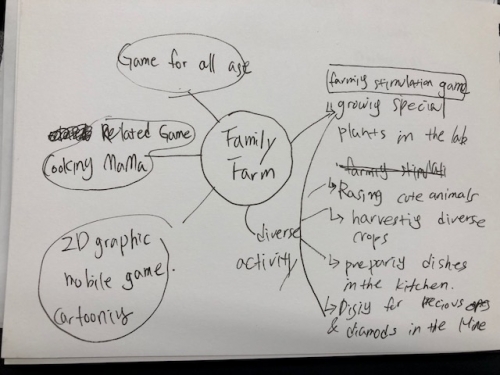 Game for all age
Related Game
Cooking MaMa
Family
Farm
2D graphic
mobile game.
cartooniy
diverse
activity
farmiy stimulation game
growiy special
plants in the lab
Rasing cute animals
harvestiy diverse
crops
prepariy dishes
in the kitchen.
Disiy for
& diamods in the Mine